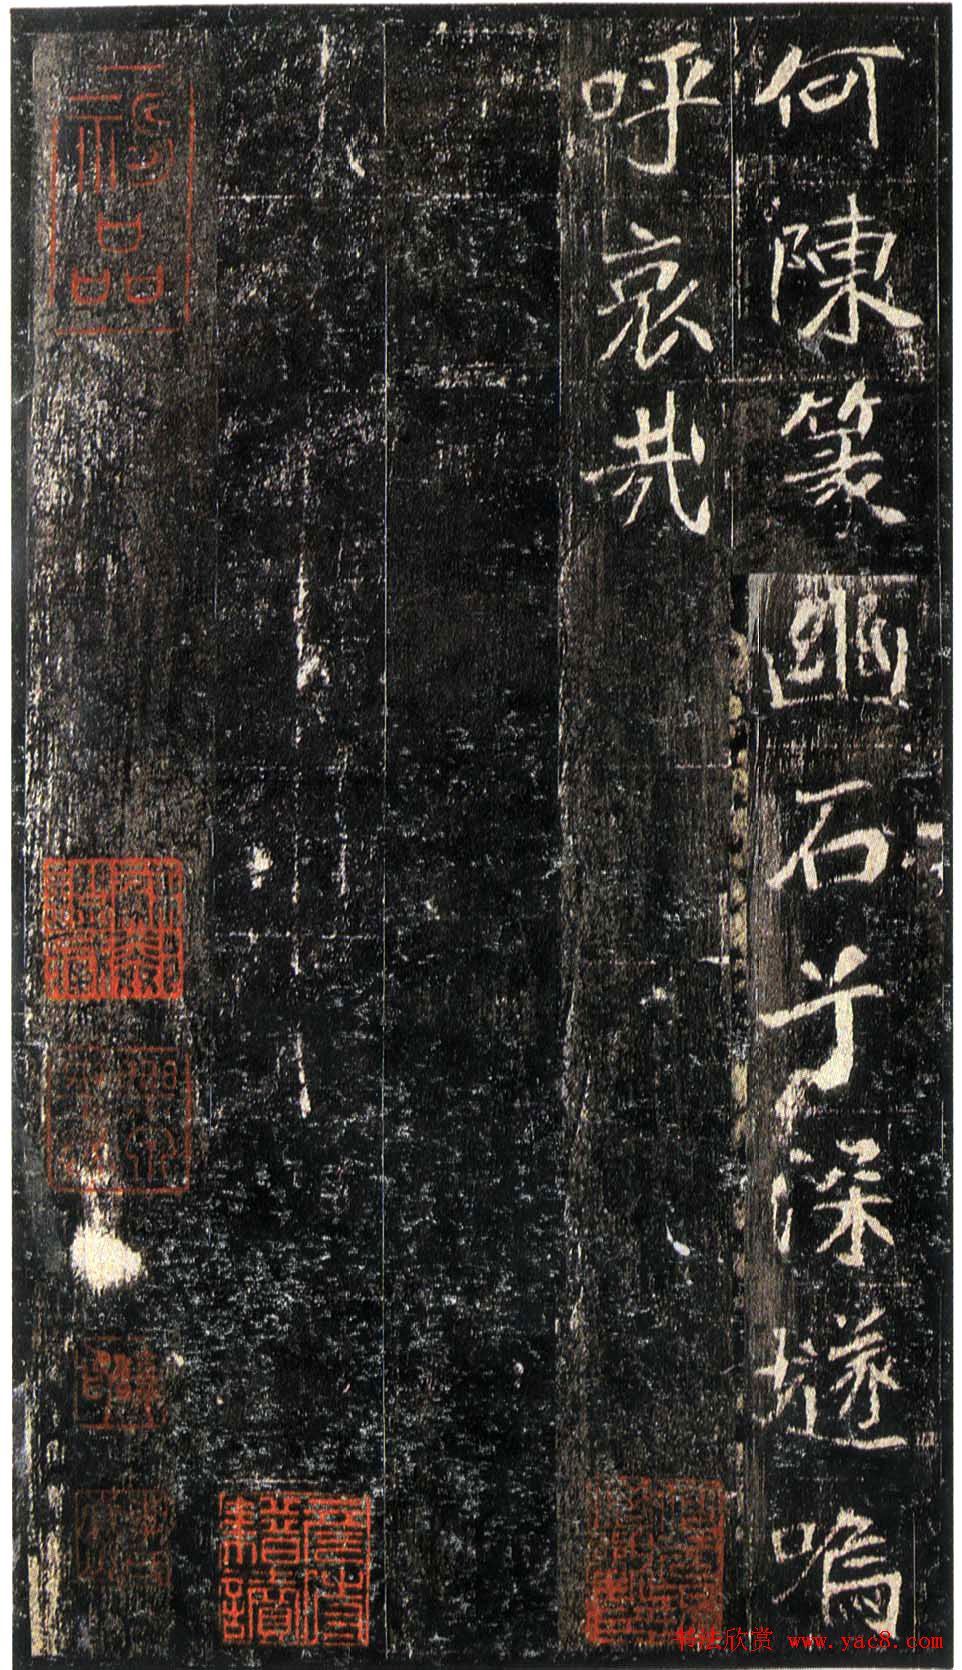 何陳篆幽石于深隧嗚
呼哀哉
神品
书法欣赏 www.yac8.com